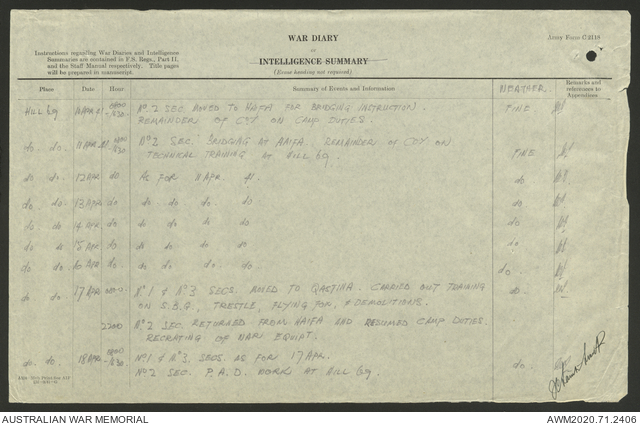 WAR DIARY
or
INTELLIGENCE SUMMARY
(Erase heading not required).
Army Form C 2118
Instructions regarding War Diaries and Intelligence
Summaries are contained in F.S. Regs., Part II,
and the Staff Manual respectively. Title pages
will be prepared in manuscript.
Place Date Hour Summary of Events and Information WEATHER Remarks and references to Appendices
Hill 69 10 APR 41 0900 -1630 No. 2 SEC MOVED TO HAIFA FOR BRIDGING INSTRUCTION. FINE
REMAINDER OF COY ON CAMP DUTIES.
do do. 11 APR 41 0900 -1630 No 2 SEC. BRIDGING AT HAIFA. REMAINDER OF COY ON
TECHNICAL TRAINING AT HILL 69. FINE
do do. 12 APR do As FOR 11 APR 41. do
do. do. 13 APR do do. do. do. do
do. do. 14 APR do do do do do
do do 15 APR do do do do do
do. do 16 APR do do do. do. do.
do do 17 APR 0800 No 1 & No 3 SECS. MOVED TO QASTINA. CARRIED OUT TRAINING do.
ON S.B.G., TRESTLE, FLYING FOX, & DEMOLITIONS.
2200 No 2 SEC RETURNED FROM HAIFA AND RESUMED CAMP DUTIES.
RECRATING OF EQUIPT.
do. do. 18 APR 0900 -1630 No 1 & No 3, SECS. AS FOR 17 APR. do.
No 2 SEC. P.A.D. WORK AT HILL 69.
AUSTRALIAN WAR MEMORIAL
AWM2020.71.2406